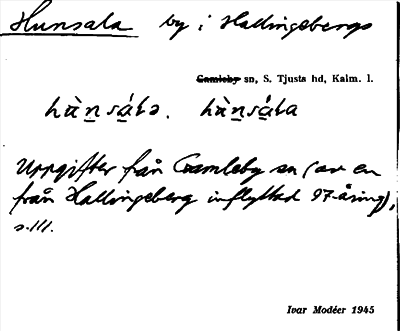 Hunsala by i Hallingebergs
Gamleby sn, S. Tjusts hd, Kalm. l.
hà̱nsálə. hà̱nsála
Uppgifter från Gamleby sn (av en
från Hallingeberg inflyttad 97-åring),
s. 111.
Ivar Modéer 1945